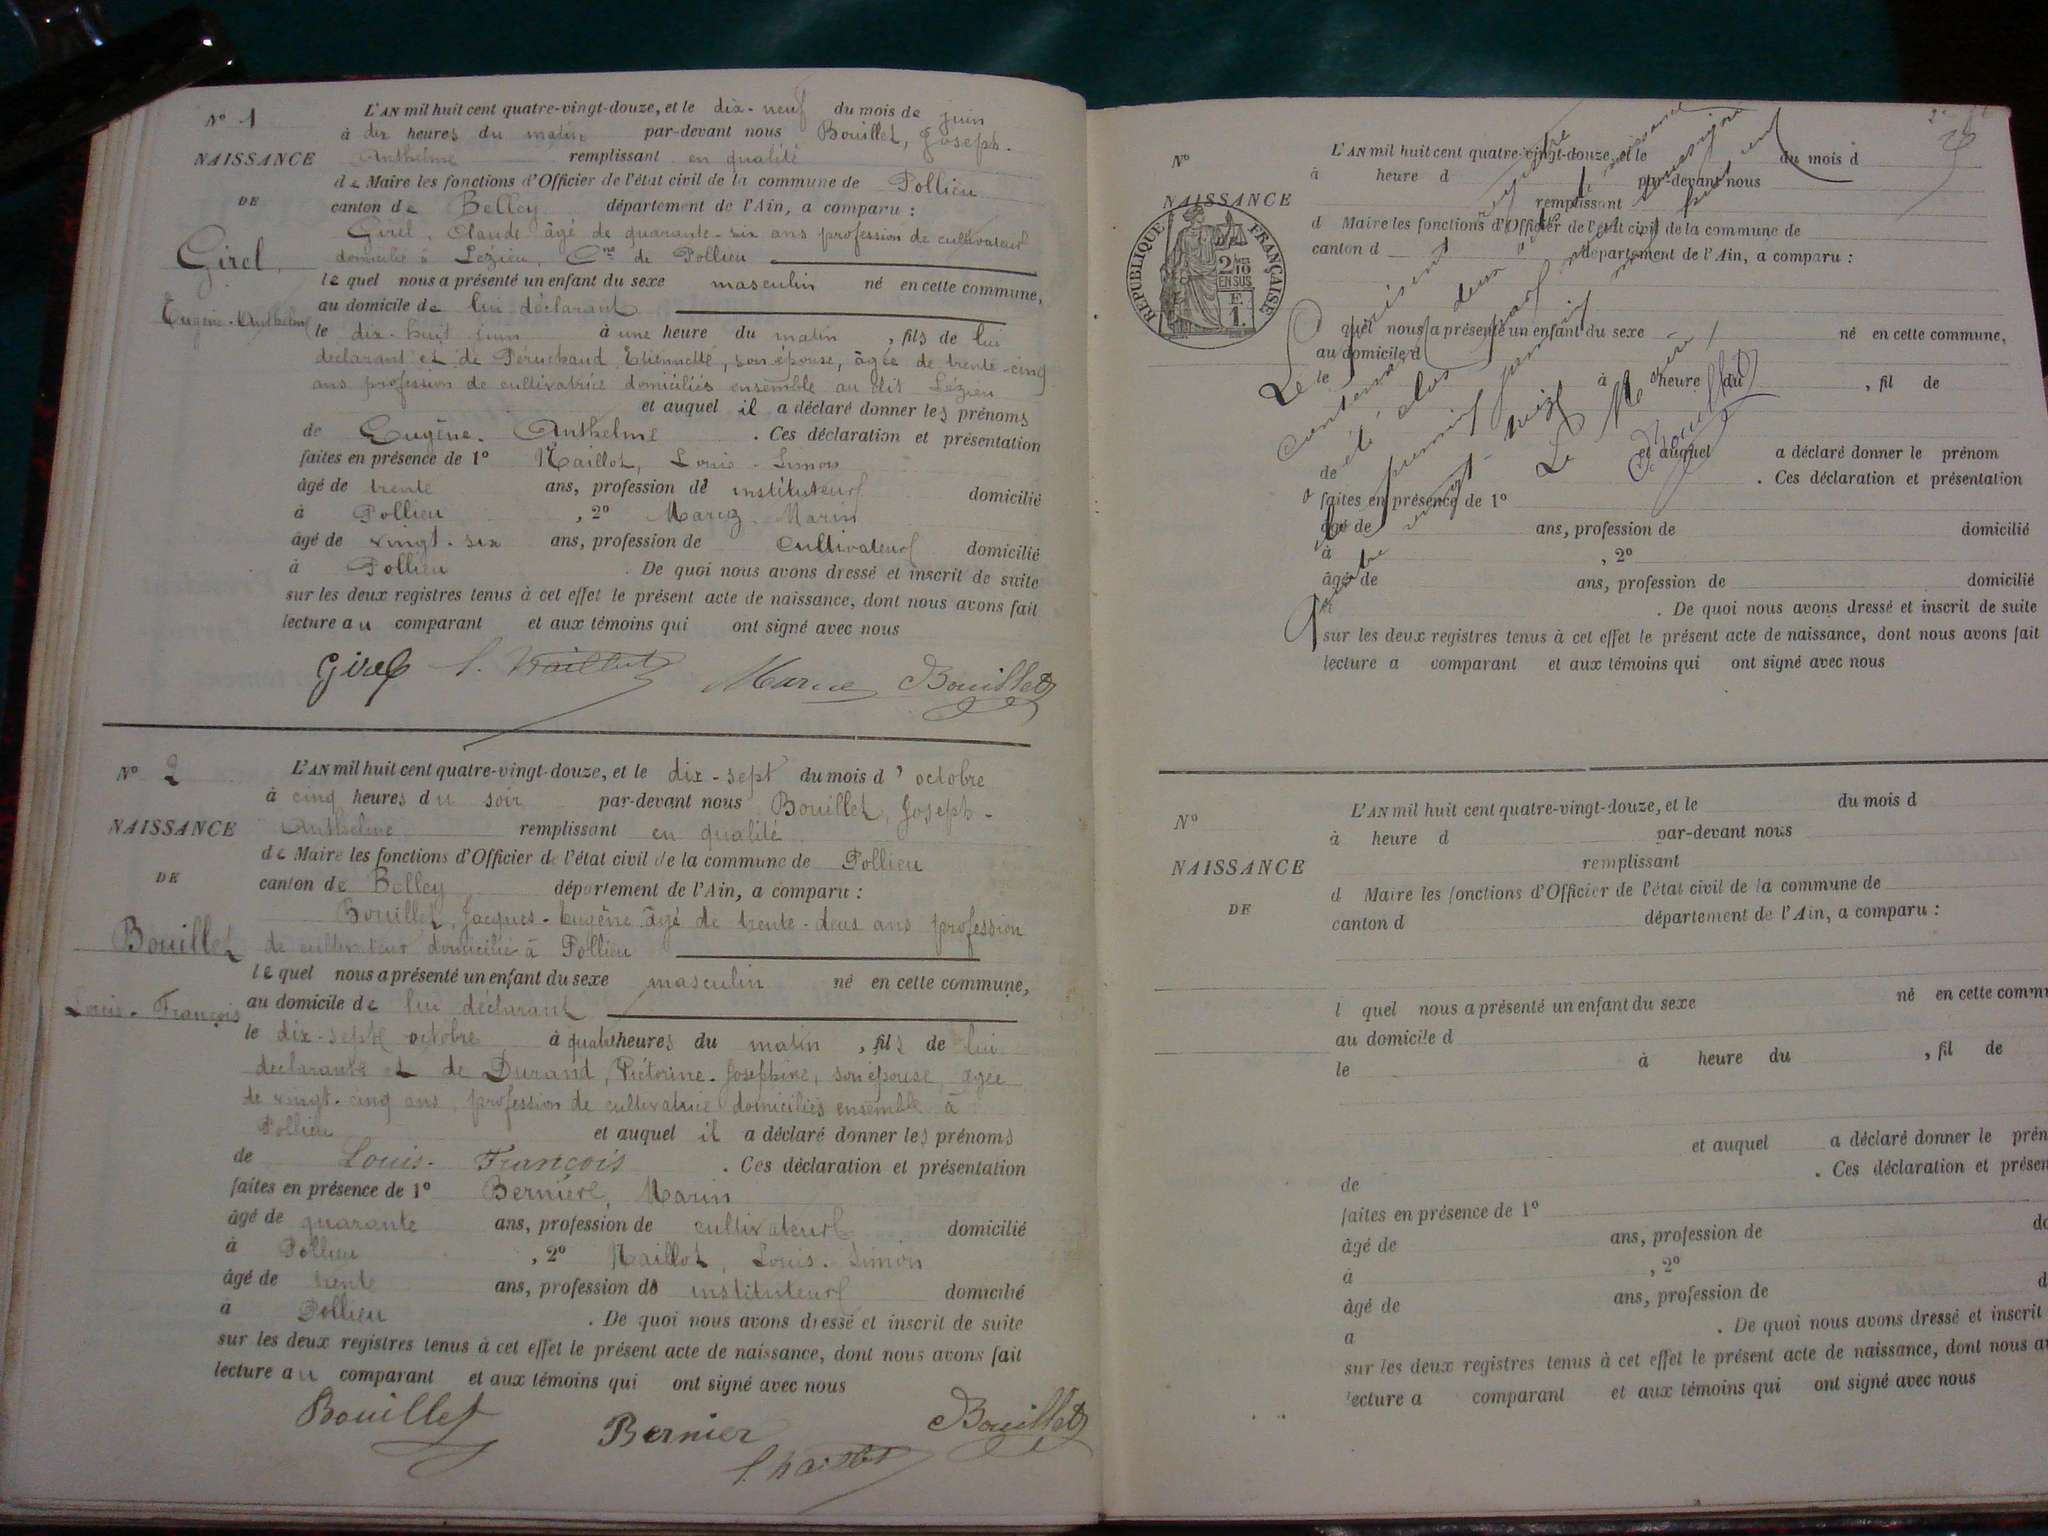 N° 1
NAISSANCE
DE
Girel
Eugène-Anthelme
L'AN mil huit cent quatre-vingt-douze, et le dix-neuf du mois de juin
à dix heures du matin par-devant nous Bouillet, Joseph-
Anthelme remplissant en qualité
de Maire les fonctions d'Officier de l'état civil de la commune de Pollieu
canton de Belley département de l'Ain, a comparu :
Girel, Claude âgé de quarante-six ans profession de cultivateur
domicilié à Lézieu, Cne de Pollieu
lequel nous a présenté un enfant du sexe masculin né en cette commune,
au domicile de lui déclarant
le dix-huit juin à une heure du matin, fils de lui
déclarant et de Peruchaud Etiennette, son épouse, âgée de trente-cinq
ans profession de cultivatrice domiciliés ensemble au dit Lézieu
et auquel il a déclaré donner les prénoms
de Eugène-Anthelme. Ces déclaration et présentation
faites en présence de 1° Naillot, Louis-Simon
âgé de trente ans, profession de instituteur domicilié
à Pollieu, 2° Marin
âgé de vingt-six ans, profession de cultivateur domicilié
à Pollieu. De quoi nous avons dressé et inscrit de suite
sur les deux registres tenus à cet effet le présent acte de naissance, dont nous avons fait
lecture au comparant et aux témoins qui ont signé avec nous
Girel Bouillet
N° 2
NAISSANCE
DE
Bouillet
Louis-François
L'AN mil huit cent quatre-vingt-douze, et le dix-sept du mois d'octobre
à cinq heures du soir par-devant nous Bouillet, Joseph-
Anthelme remplissant en qualité
de Maire les fonctions d'Officier de l'état civil de la commune de Pollieu
canton de Belley département de l'Ain, a comparu :
Bouillet, Jacques-Eugène âgé de trente-deux ans profession
de cultivateur domicilié à Pollieu
lequel nous a présenté un enfant du sexe masculin né en cette commune,
au domicile de lui déclarant
le dix-sept octobre à quatre heures du matin, fils de lui
déclarant et de Durand, Victorine-Joséphine, son épouse, âgée
de vingt-cinq ans, profession de cultivatrice domiciliés ensemble à
Pollieu et auquel il a déclaré donner les prénoms
de Louis-François. Ces déclaration et présentation
faites en présence de 1° Bernier, Marin
âgé de quarante ans, profession de cultivateur domicilié
à Pollieu, 2° Naillot, Louis-Simon
âgé de trente ans, profession de instituteur domicilié
à Pollieu. De quoi nous avons dressé et inscrit de suite
sur les deux registres tenus à cet effet le présent acte de naissance, dont nous avons fait
lecture au comparant et aux témoins qui ont signé avec nous
Bouillet Bernier Bouillet
N°
NAISSANCE
RÉPUBLIQUE FRANÇAISE
2/10 EN SUS
E. 1.
L'AN mil huit cent quatre-vingt-douze, et le du mois d
à heure d par-devant nous
remplissant
d Maire les fonctions d'Officier de l'état civil de la commune de
canton d département de l'Ain, a comparu :
l quel nous a présenté un enfant du sexe né en cette commune,
au domicile d
le à heure du, fil de
et auquel a déclaré donner le prénom
de. Ces déclaration et présentation
faites en présence de 1°
âgé de ans, profession de domicilié
à, 2°
âgé de ans, profession de domicilié
à. De quoi nous avons dressé et inscrit de suite
sur les deux registres tenus à cet effet le présent acte de naissance, dont nous avons fait
lecture a comparant et aux témoins qui ont signé avec nous
Le présent registre
contenant deux actes de naissance
a été clos par nous soussigné
le premier janvier mil huit cent
quatre vingt-treize
Le Maire
Bouillet
N°
NAISSANCE
DE
L'AN mil huit cent quatre-vingt-douze, et le du mois d
à heure d par-devant nous
remplissant
d Maire les fonctions d'Officier de l'état civil de la commune de
canton d département de l'Ain, a comparu :
l quel nous a présenté un enfant du sexe né en cette comm
au domicile d
le à heure du, fil de
et auquel a déclaré donner le prén
de. Ces déclaration et présen
faites en présence de 1°
âgé de ans, profession de do
à, 2°
âgé de ans, profession de d
a. De quoi nous avons dressé et inscrit
sur les deux registres tenus à cet effet le présent acte de naissance, dont nous a
lecture a comparant et aux témoins qui ont signé avec nous